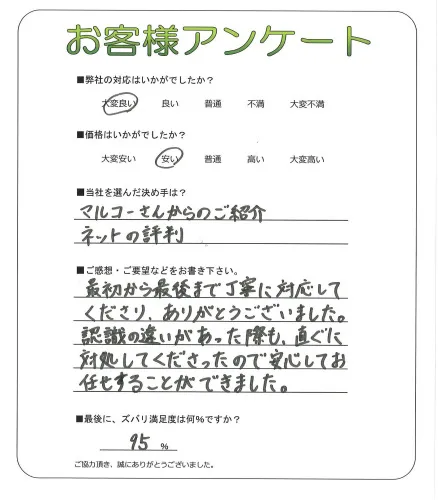 お客様アンケート
■弊社の対応はいかがでしたか?
大変良い 良い 普通 不満 大変不満
■価格はいかがでしたか?
大変安い 安い 普通 高い 大変高い
■当社を選んだ決め手は?
マルコーさんからのご紹介
ネットの評判
■ご感想・ご要望などをお書き下さい。
最初から最後まで丁寧に対応して
くださり、ありがとうございました。
認識の違いがあった際も、直ぐに
対処してくださったので安心してお
任せすることができました。
■最後に、ズバリ満足度は何%ですか?
95 %
ご協力頂き、誠にありがとうございました。